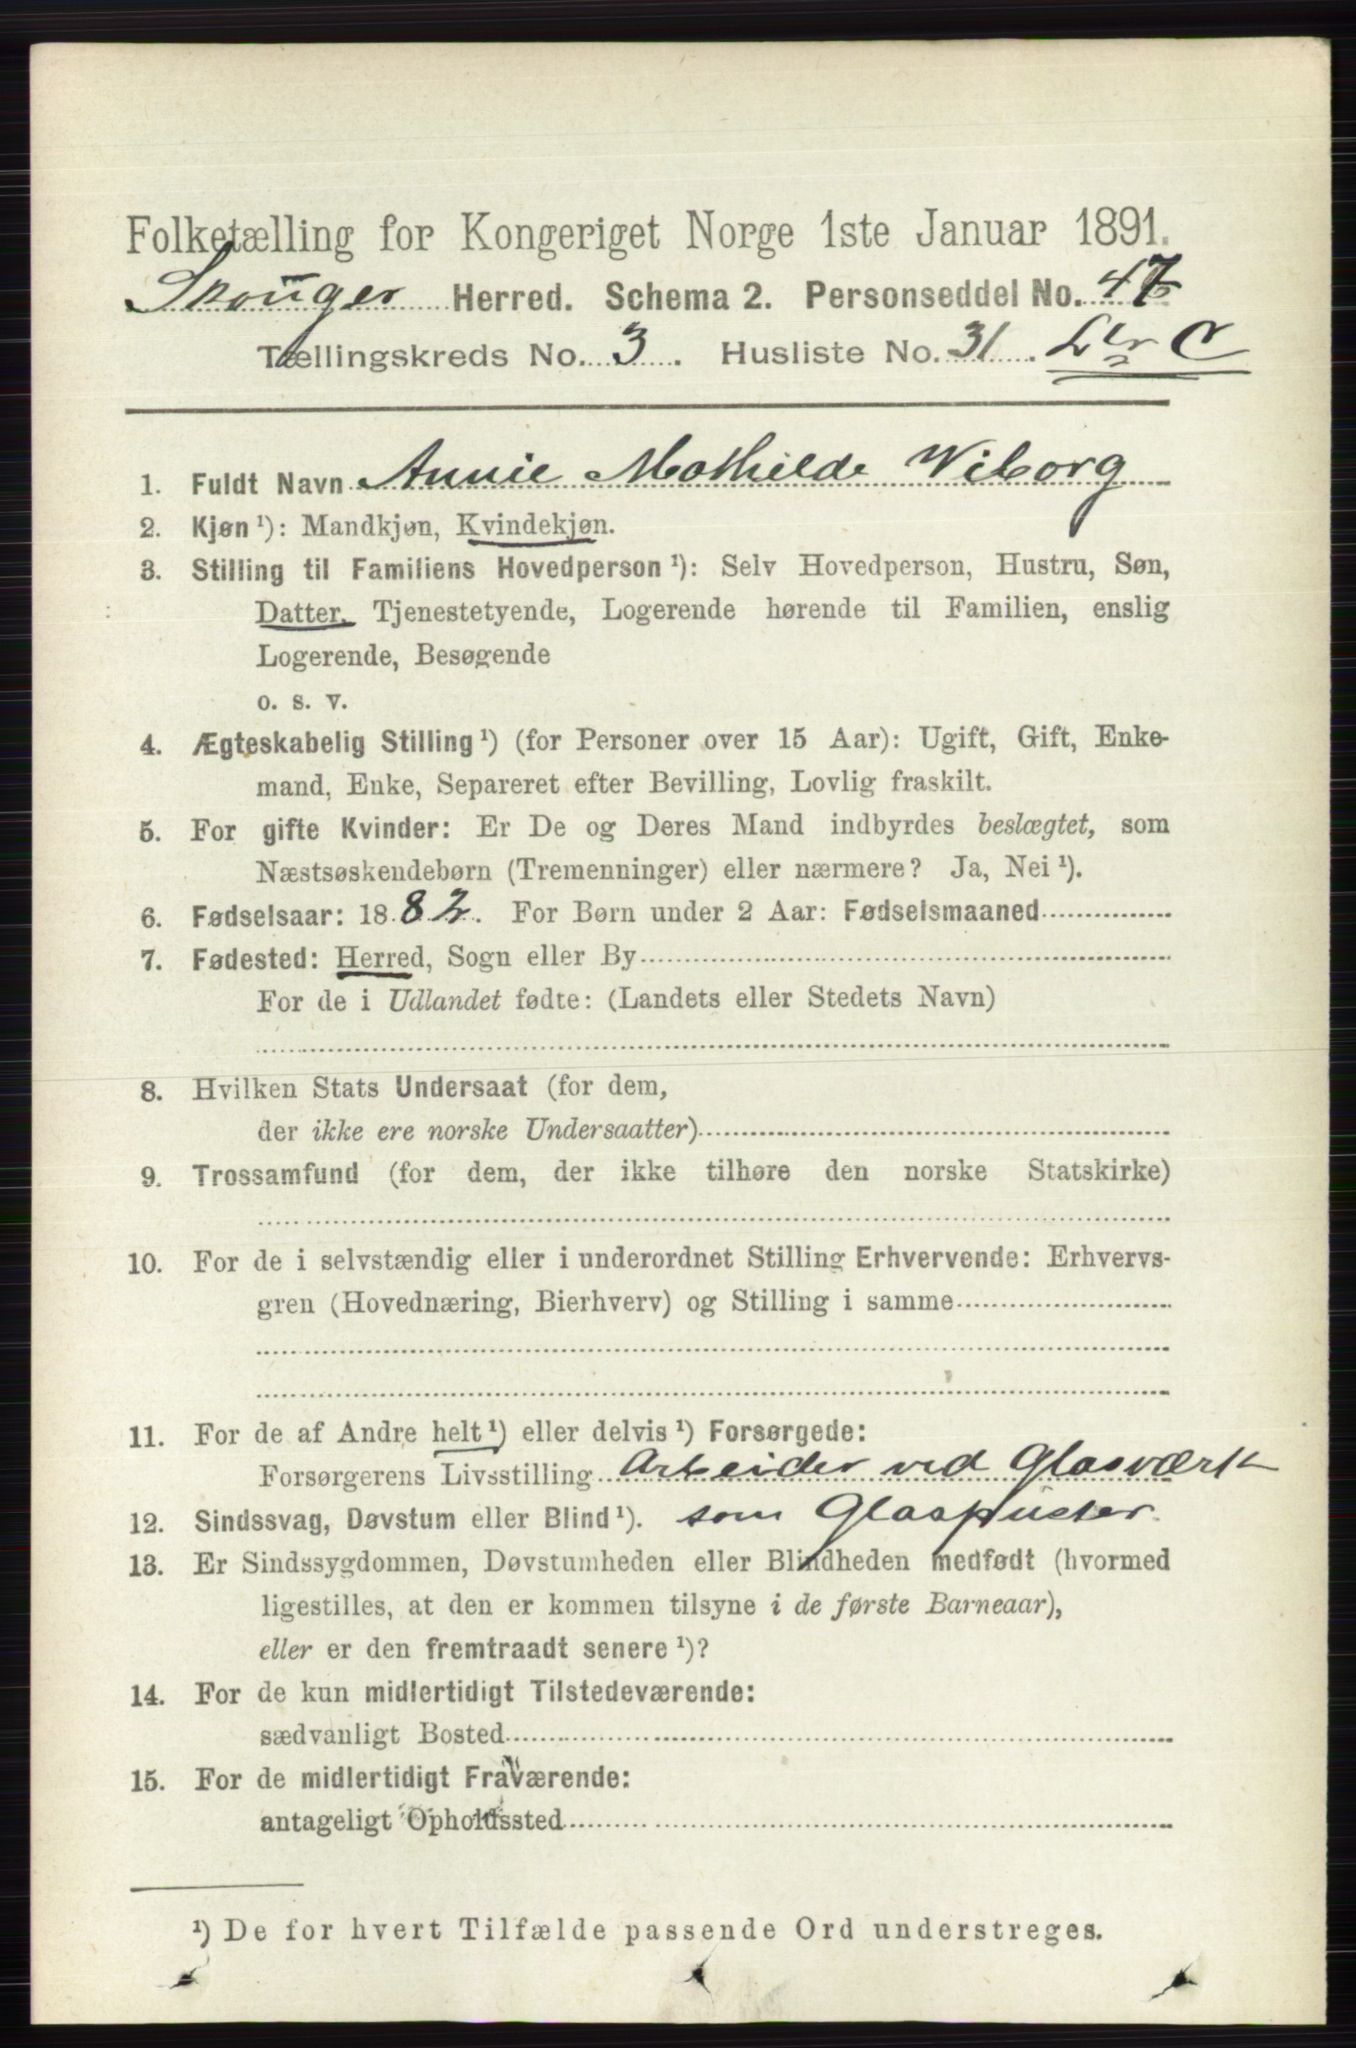 Folketælling for Kongeriget Norge 1ste Januar 1891.
Skouger Herred. Schema 2. Personseddel No. 47
Tællingskreds No. 3. Husliste No. 31. Ltr C
1. Fuldt Navn Annie Mathilde Wiborg
2. Kjøn ¹): Mandkjøn, Kvindekjøn.
3. Stilling til Familiens Hovedperson ¹): Selv Hovedperson, Hustru, Søn,
Datter, Tjenestetyende, Logerende hørende til Familien, enslig
Logerende, Besøgende
o. s. v.
4. Ægteskabelig Stilling ¹) (for Personer over 15 Aar): Ugift, Gift, Enke-
mand, Enke, Separeret efter Bevilling, Lovlig fraskilt.
5. For gifte Kvinder: Er De og Deres Mand indbyrdes beslægtet, som
Næstsøskendebørn (Tremenninger) eller nærmere? Ja, Nei ¹).
6. Fødselsaar: 1882. For Børn under 2 Aar: Fødselsmaaned
7. Fødested: Herred, Sogn eller By
For de i Udlandet fødte: (Landets eller Stedets Navn)
8. Hvilken Stats Undersaat (for dem,
der ikke ere norske Undersaatter)
9. Trossamfund (for dem, der ikke tilhøre den norske Statskirke)
10. For de i selvstændig eller i underordnet Stilling Erhvervende: Erhvervs-
gren (Hovednæring, Bierhverv) og Stilling i samme
11. For de af Andre helt ¹) eller delvis ¹) Forsørgede:
Forsørgerens Livsstilling Arbeider ved Glasværk
12. Sindssvag, Døvstum eller Blind ¹). som Glaspuster.
13. Er Sindssygdommen, Døvstumheden eller Blindheden medfødt (hvormed
ligestilles, at den er kommen tilsyne i de første Barneaar),
eller er den fremtraadt senere ¹)?
14. For de kun midlertidigt Tilstedeværende:
sædvanligt Bosted
15. For de midlertidigt Fraværende:
antageligt Opholdssted
¹) De for hvert Tilfælde passende Ord understreges.